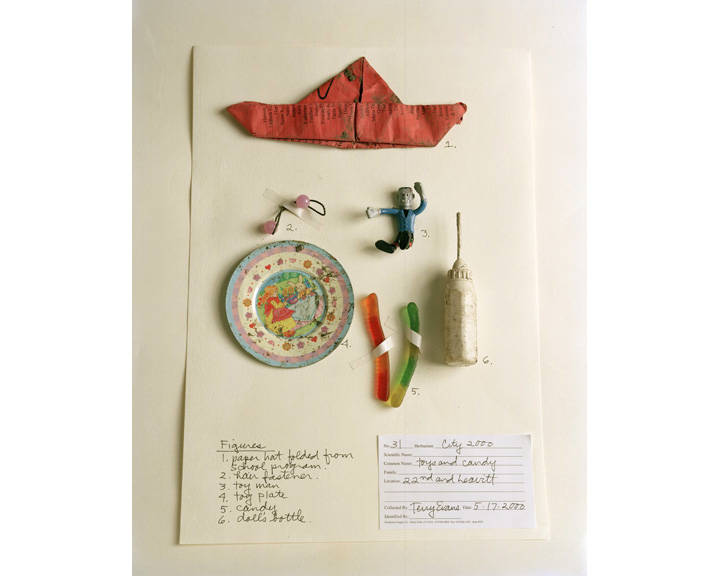 1.
2.
3.
4.
5.
6.
Figures
1. paper hat folded from
school program.
2. hair fastener.
3. toy man
4. toy plate
5. candy
6. doll's bottle.
No. 31 Herbarium City 2000
Scientific Name:
Common Name: toys and candy
Family:
Location: 22nd and Leavitt
Collected By: Terry Evans Date: 5-17-2000
Identified By: